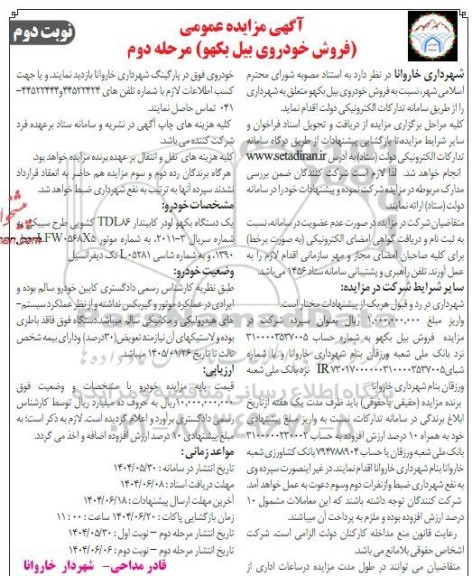 آگهی مزایده عمومی
(فروش خودروی بیل بکهو) مرحله دوم
نوبت دوم
شهرداری خاروانا در نظر دارد به استناد مصوبه شورای محترم
اسلامی شهر، نسبت به فروش خودروی بیل بکهو متعلق به شهرداری
را از طریق سامانه تدارکات الکترونیکی دولت اقدام نماید.
کلیه مراحل برگزاری مزایده از دریافت و تحویل اسناد فراخوان و
سایر شرایط مزایده، تا بازگشایی پیشنهادات از طریق درگاه سامانه
تدارکات الکترونیکی دولت (ستاد) به آدرس www.setadiran.ir
انجام خواهد شد. لذا لازم است شرکت کنندگان ضمن بررسی
مدارک مربوطه در مزایده شرکت نموده و پیشنهادات خود را در سامانه
دولت (ستاد) ارائه نمایند.
متقاضیان شرکت در مزایده در صورت عدم عضویت در سامانه، نسبت
به ثبت نام و دریافت گواهی امضای الکترونیکی (به صورت برخط)
برای کلیه صاحبان امضای مجاز و مهر سازمانی اقدام لازم را به
عمل آورند. تلفن راهبری و پشتیبانی سامانه ستاد ۱۴۵۶ می باشد.
سایر شرایط شرکت در مزایده:
شهرداری در رد و قبول هر یک از پیشنهادات مختار است.
واریز مبلغ ۱,۰۰۰,۰۰۰,۰۰۰ ریال بعنوان سپرده شرکت در
مزایده فروش بیل بکهو به شماره حساب ۳۱۰۰۰۰۳۵۳۷۰۰۵
نزد بانک ملی شعبه ورزقان بنام شهرداری خاروانا و یا شماره
نزد بانک ملی شعبه
ورزقان بنام شهرداری خاروانا
برنده مزایده (حقیقی یا حقوقی) باید ظرف مدت یک هفته از تاریخ
ابلاغ برندگی در سامانه تدارکات، نشت به واریز مبلغ پیشنهادی
خود به همراه ۱۰ درصد ارزش افزوده به حساب
بانک ملی شعبه ورزقان یا حساب ۷۹۴۷۸۸۹۰۴ بانک کشاورزی شعبه
خاروانا بنام شهرداری خاروانا اقدام نمایند. در غیر اینصورت سپرده وی
به نفع شهرداری ضبط و از نفرات دوم و سوم دعوت به عمل خواهد آمد.
شرکت کنندگان توجه داشته باشند که این معاملات مشمول ۱۰
درصد ارزش افزوده بوده و ملزم به پرداخت آن میباشند.
رعایت قانون منع مداخله کارکنان دولت الزامی است. شرکت
اشخاص حقوقی بلامانع می باشد.
متقاضیان می توانند در طول مدت مزایده در ساعات اداری از
خودروی فوق در پارکینگ شهرداری خاروانا بازدید نمایند. و یا جهت
کسب اطلاعات لازم با شماره تلفن های ۴۴۵۲۲۴۲۴ و ۴۴۵۲۲۴۴۴-
۰۴۱ تماس حاصل نمایند.
کلیه هزینه های چاپ آگهی در نشریه و سامانه ستاد بر عهده فرد
شرکت کننده می باشد.
کلیه هزینه های نقل و انتقال بر عهده برنده مزایده خواهد بود.
هرگاه برندگان رده دوم و سوم مزایده هم حاضر به انعقاد قرارداد
نشدند سپرده آنها به ترتیب به نفع شهرداری ضبط خواهد شد.
مشخصات خودرو:
یک دستگاه بکهو لودر کابیندار TDL۸۶ کششویی طرح سیبک به
شماره سریال ۲۰۱۱-۳، به شماره موتور
۱۳۹۰، و به شماره شاسی L۰۵۲۸۱ تک دیفرانسیل
وضعیت خودرو:
طبق نظریه کارشناس رسمی دادگستری کابین خودرو سالم بوده و
ایرادی در عملکرد موتور و گیربکس نداشته و از نظر عملکرد سیستم-
های هیدرولیکی و مکانیکی سالم میباشد. دستگاه فوق فاقد باطری
بوده و لاستیکهای آن نیازمند تعویض (۳۰درصد) و دارای بیمه شخص
ثالث تا تاریخ ۱۴۰۵/۰۱/۲۶ میباشد.
ارزیابی:
قیمت پایه مزایده خودرو با مشخصات و وضعیت فوق
۱۰,۰۰۰,۰۰۰,۰۰۰ ریال به حروف ده میلیارد ریال توسط کارشناس
رسمی دادگستری برآورد و اعلام گردیده است. لازم به ذکر است: به
مبلغ پیشنهادی ۱۰ درصد ارزش افزوده اضافه و اخذ می گردد.
مواعد زمانی:
تاریخ انتشار در سامانه : ۱۴۰۴/۰۵/۳۰
مهلت دریافت اسناد : ۱۴۰۴/۰۶/۰۸
آخرین مهلت ارسال پیشنهادات : ۱۴۰۴/۰۶/۱۸
زمان بازگشایی پاکات : ۱۴۰۴/۰۶/۲۰ ساعت : ۱۱:۰۰
تاریخ انتشار مرحله دوم – نوبت اول : ۱۴۰۴/۰۵/۳۰
تاریخ انتشار مرحله دوم – نوبت دوم : ۱۴۰۴/۰۶/۰۶
قادر مداحی- شهردار خاروانا